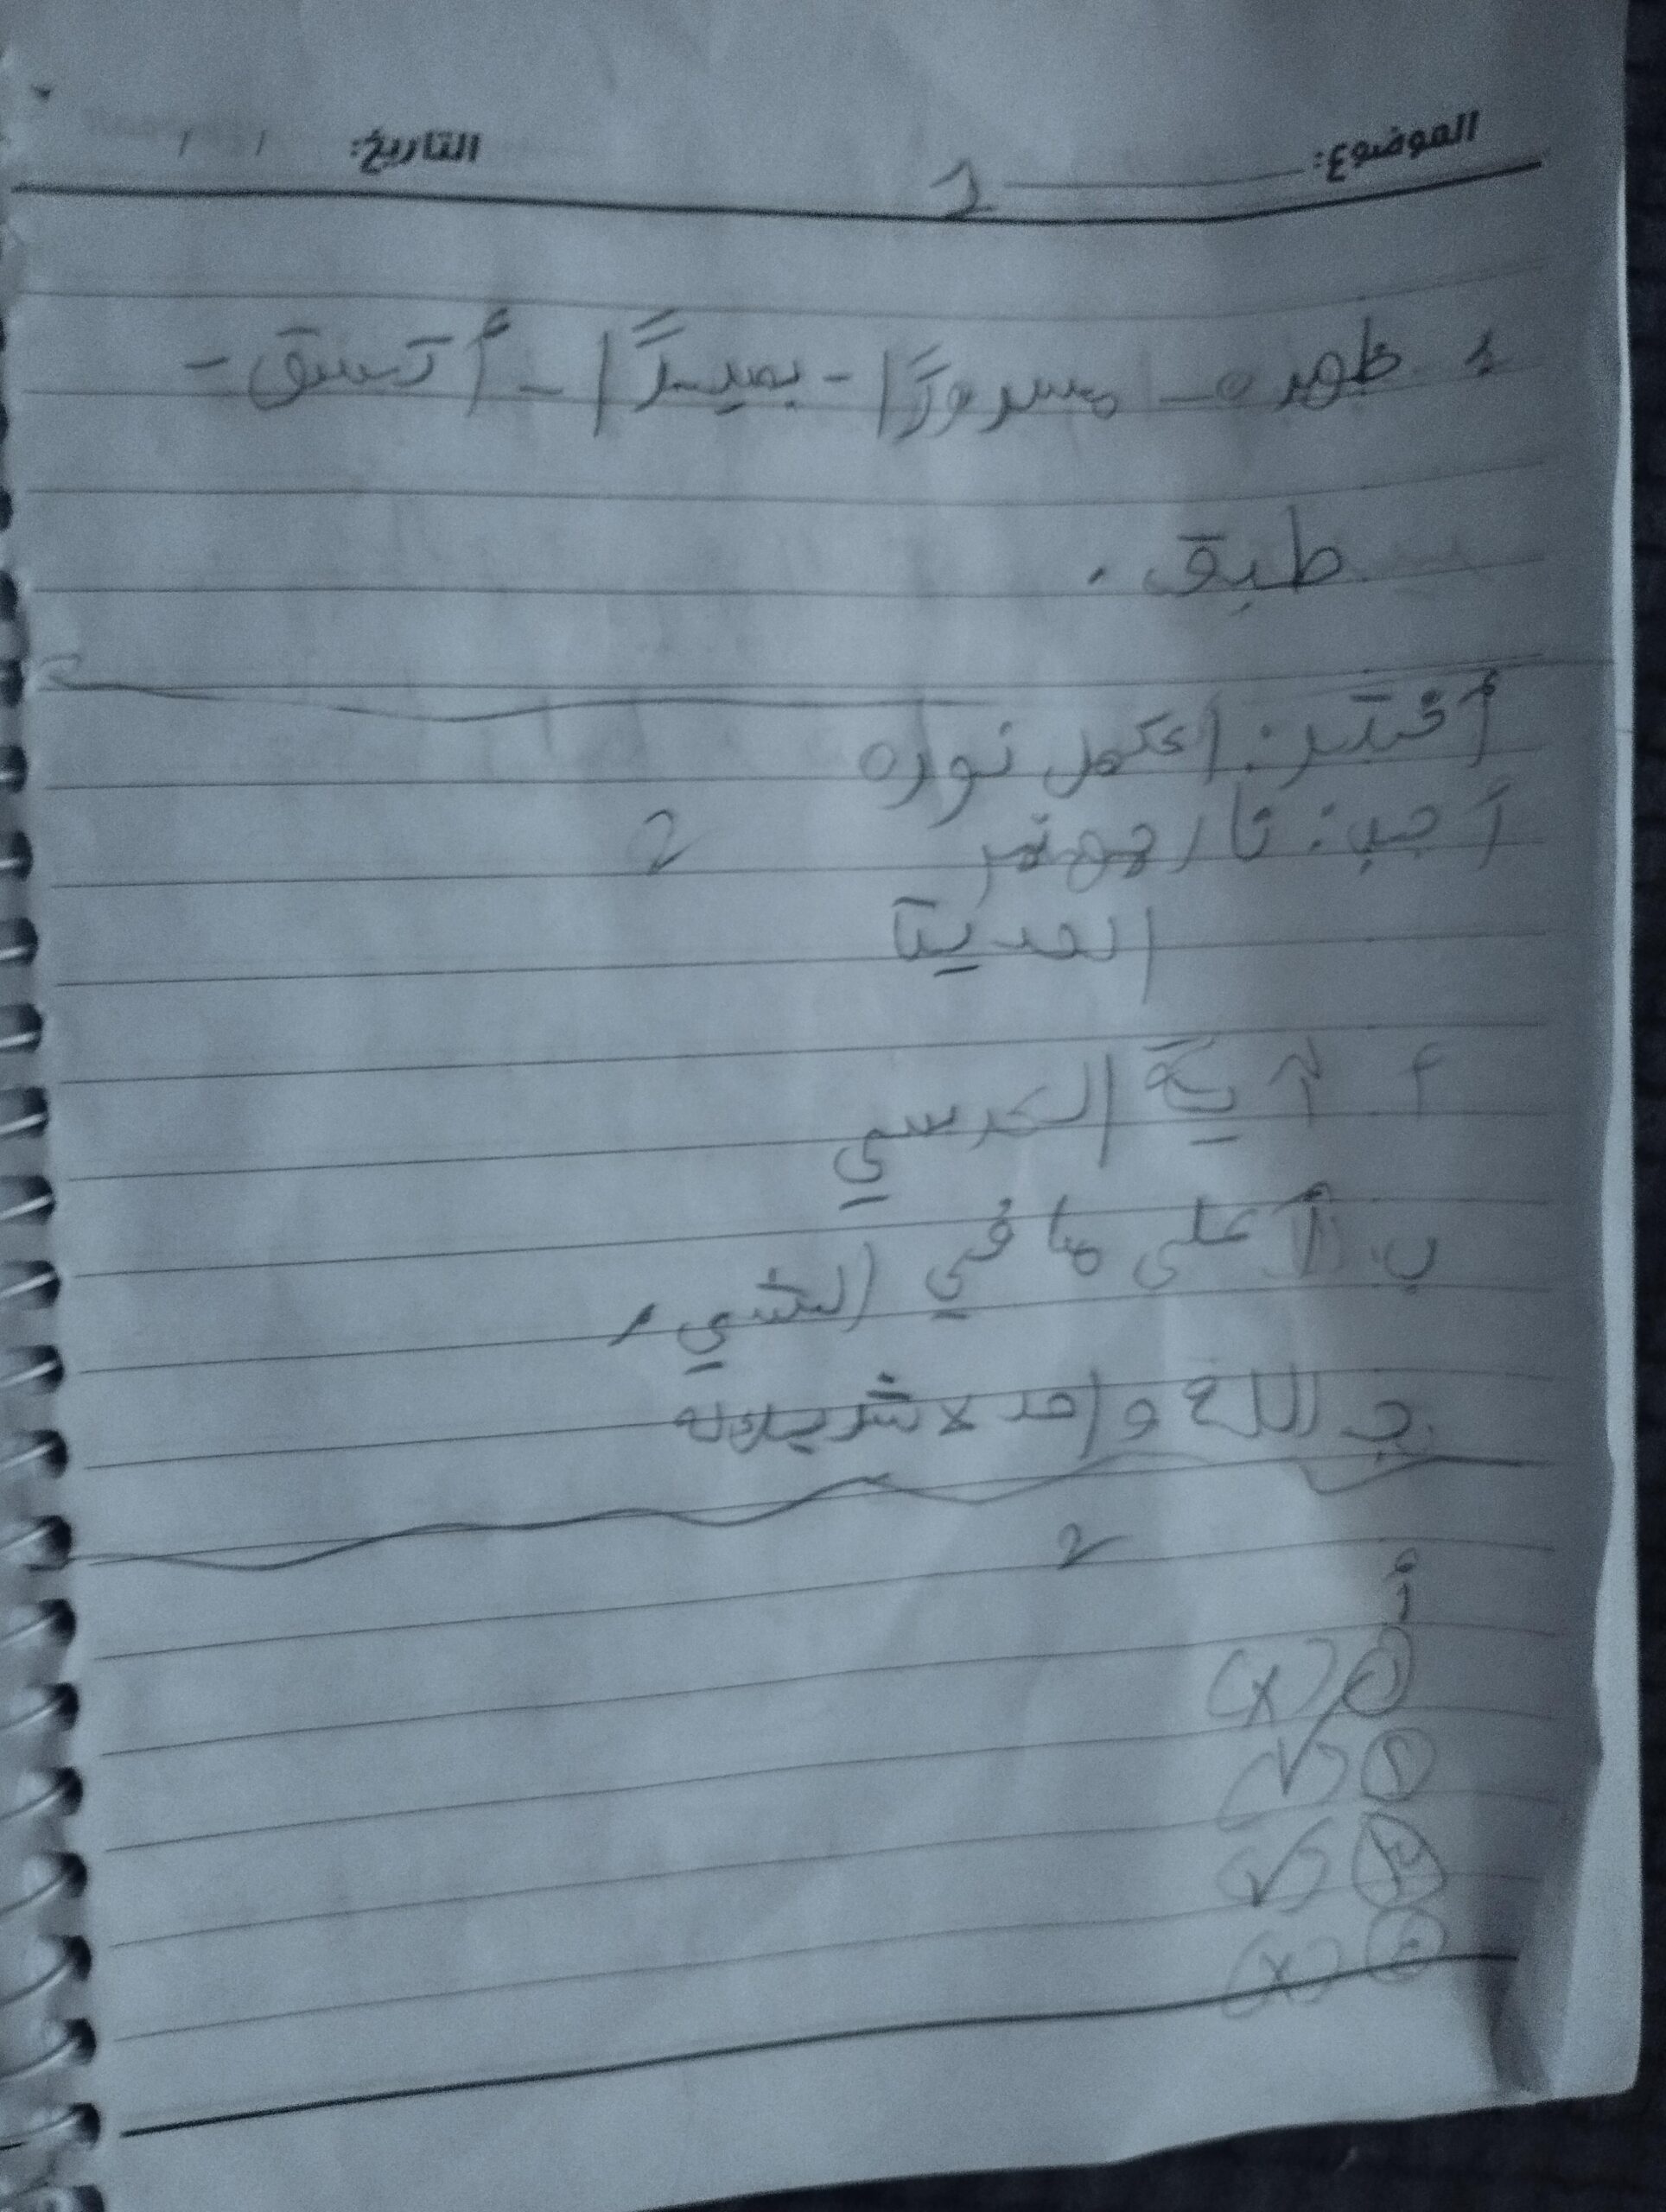 الموضوع: التاريخ: / /
2
٤ ظهره - مسرورًا - بصيرًا - أتسق -
طبق .
أختبر: اكمل نواره
أجب: نار جهنم 2
العديتا
٢. آية الكرسي
ب. أعلى ما في الشيء
ج الله واحد لا شريك له
2
أ
١ (x)
٢ (✓)
٣ (✓)
٤ (x)